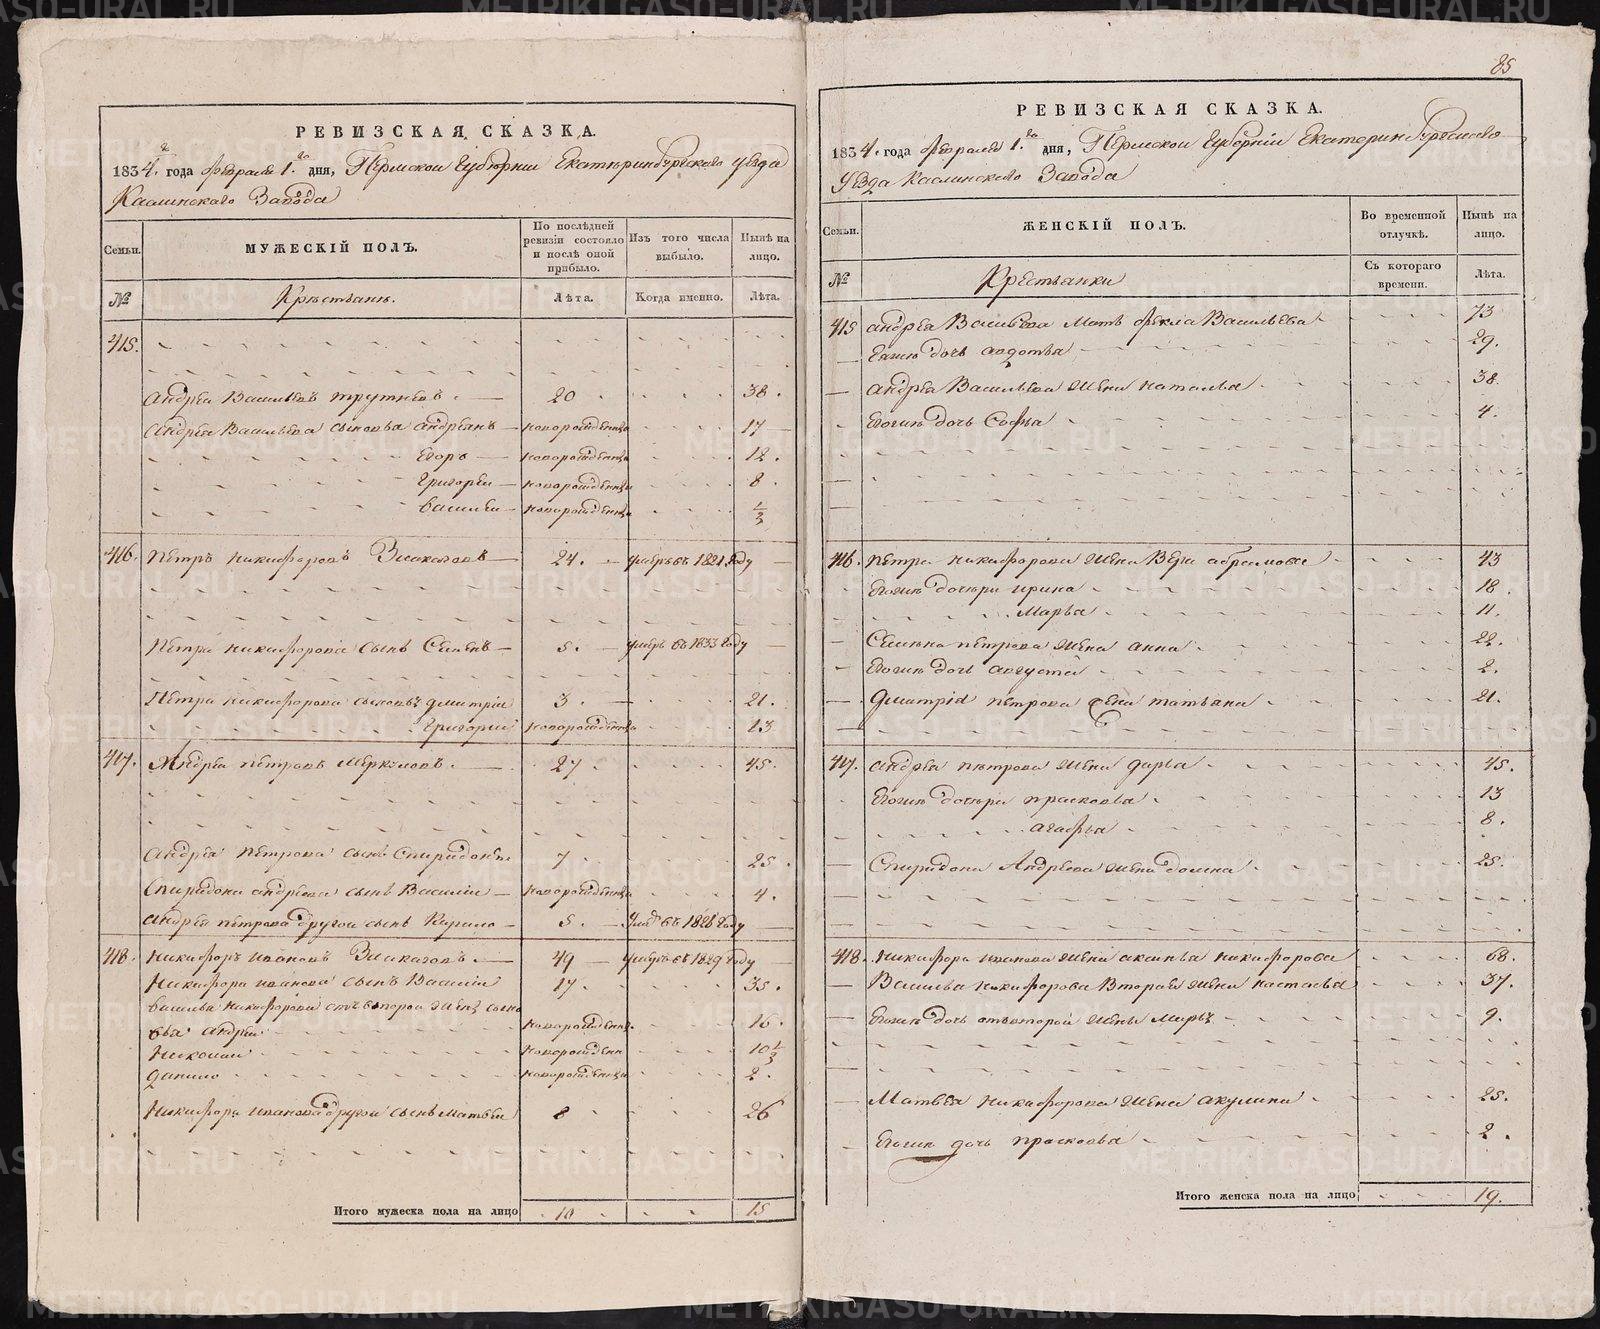 РЕВИЗСКАЯ СКАЗКА.
1834. года февраля 1. дня, Пермской Губернии Екатеринбургского уезда
Каслинского Завода
Семьи.
МУЖЕСКІЙ ПОЛЪ.
По послѣдней ревизіи состояло и послѣ оной прибыло.
Изъ того числа выбыло.
Нынѣ на лицо.
№
Крестьяне.
Лѣта.
Когда именно.
Лѣта.
415.
Андреа Васильевъ трутневъ 20 38.
Андреа Васильева сыновья андреанъ новорожденны 17
Егоръ новорожденны 12.
Григореи новорожденны 8.
Василеи новорожденны 1/2
416. Петръ никифоровъ 24. умръ въ 1821 году
Петра никифорова сынъ Семенъ 5. умръ въ 1833 году
Петра никифорова сыновья дмитріи 3. 21.
Григореи новорожденны 13
417. Андреа петровъ 27 45.
Андреа петрова сынъ Спиридонъ 7 25.
Спиридона андреева сынъ Василіи новорожденны 4.
андреа петрова другои сынъ Кирило 5. въ 1828 году
418. Никифоръ ивановъ 49 умръ въ 1829 году
Никифора иванова сынъ Василіи 17. 35.
Василья Никифорова отъ второи жены сыно
вья андреи новорожденны. 16.
Николаи новорожденн 10 1/2
данило новорожденны 2.
Никифора иванова другои сынъ матвеи 8 26
Итого мужеска пола на лицо 10 15
85
РЕВИЗСКАЯ СКАЗКА.
1834. года февраля 1. дня, Пермской Губерніи Екатеринбургского
Уезда Каслинского Завода
Семьи.
ЖЕНСКІЙ ПОЛЪ.
Во временной отлучкѣ.
Нынѣ на лицо.
№
Крестьянки
Съ котораго времени.
Лѣта.
415 андреа Васильева мать фекла Васильева 73
Евоже дочь авдотья 29.
андреа Васильева жена наталья 38.
Евоже дочь Софья 4.
416. петра никифорова жена Вера абрамова 43
Евоже дочери ирина 18.
Марья 11.
Семена петрова жена анна 22.
Евоже дочь августа 2.
Дмитріа петрова жена татьяна 21.
417. андреа петрова жена дарья 45.
Евоже дочери прасковья 13
агафья 8.
Спиридона Андреева жена домна 25.
418. Никифора иванова жена аксинья никифорова 68.
Василья никифорова Вторая жена наталья 37.
Евоже дочь отъ второй жены 9.
Матвея никифорова жена акулина 25.
Евоже дочь прасковья 2.
Итого женска пола на лицо 19.
METRIKI.GASO-URAL.RU